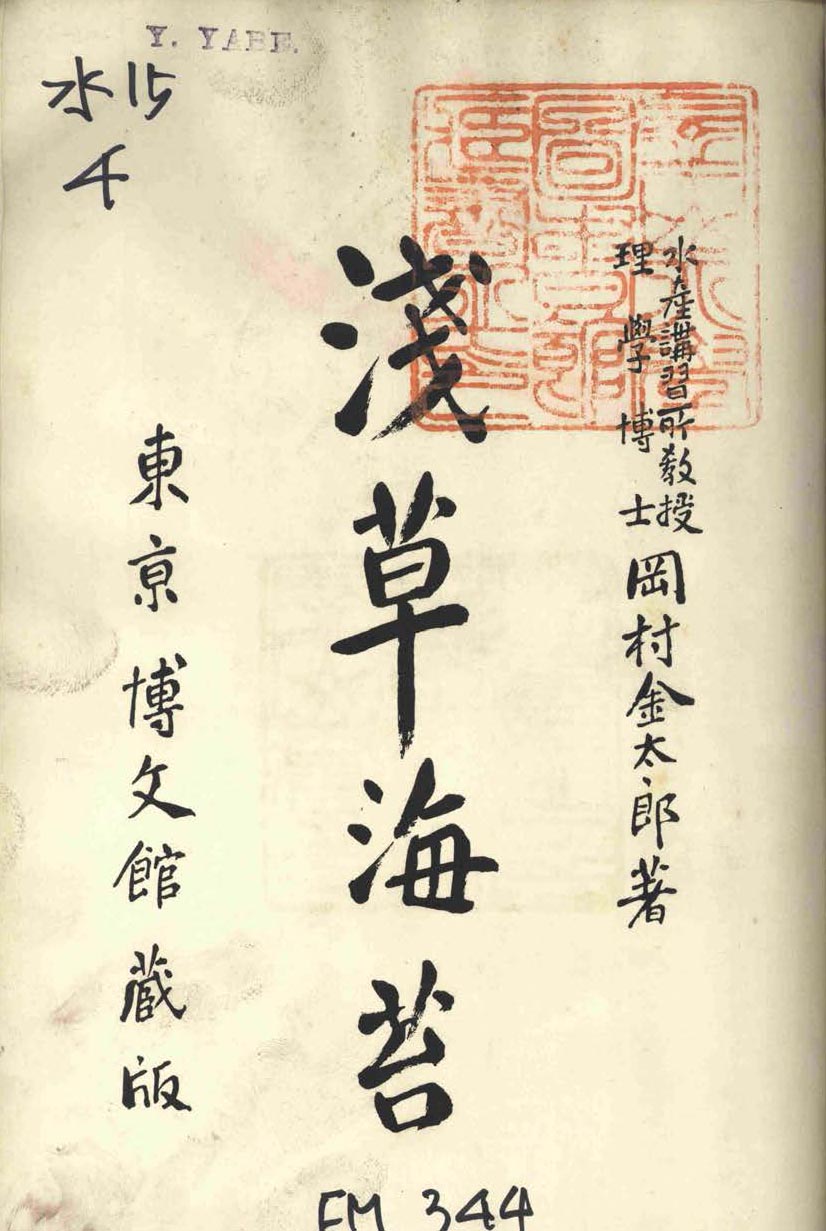 Y. YABE.
水15
4
水産講習所教授
理學博士
岡村金太郎著
淺草海苔
東京博文館蔵版
FM 344